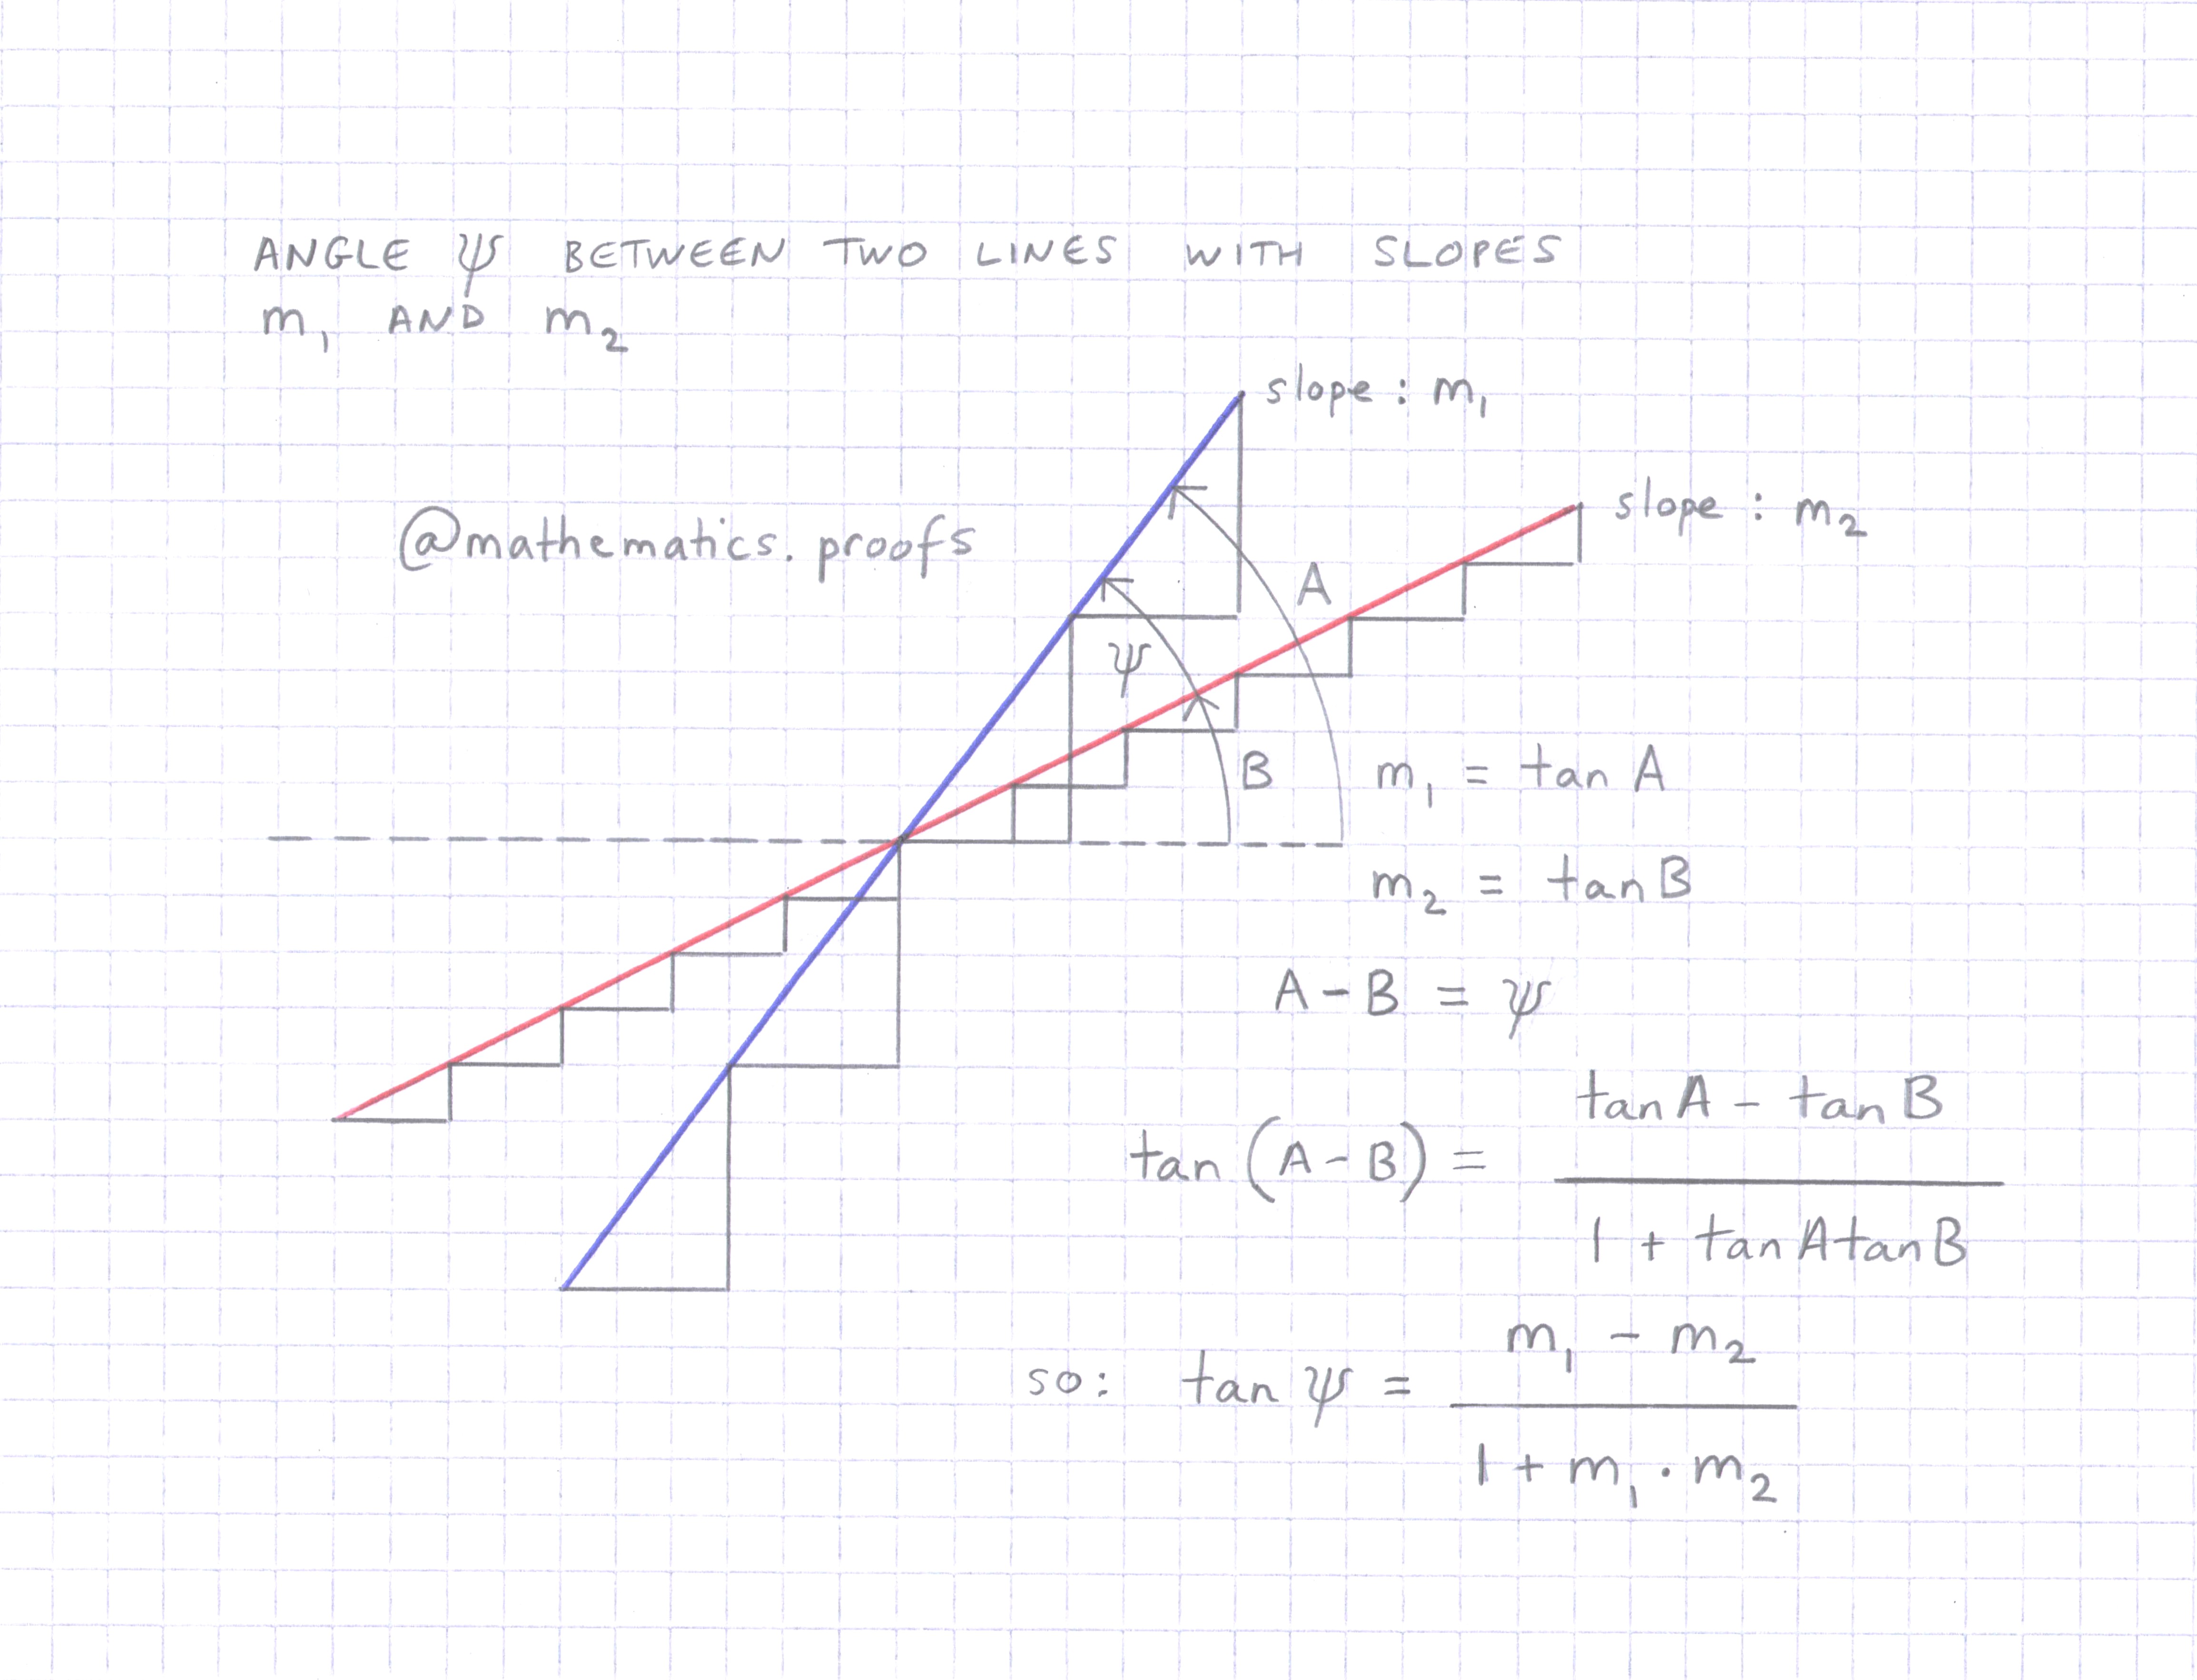 ANGLE ψ BETWEEN TWO LINES WITH SLOPES
m₁ AND m₂
slope : m₁
slope : m₂
@mathematics.proofs
A
ψ
B
m₁ = tan A
m₂ = tan B
A - B = ψ
tan (A - B) = tan A - tan B / 1 + tan A tan B
so: tan ψ = m₁ - m₂ / 1 + m₁ · m₂